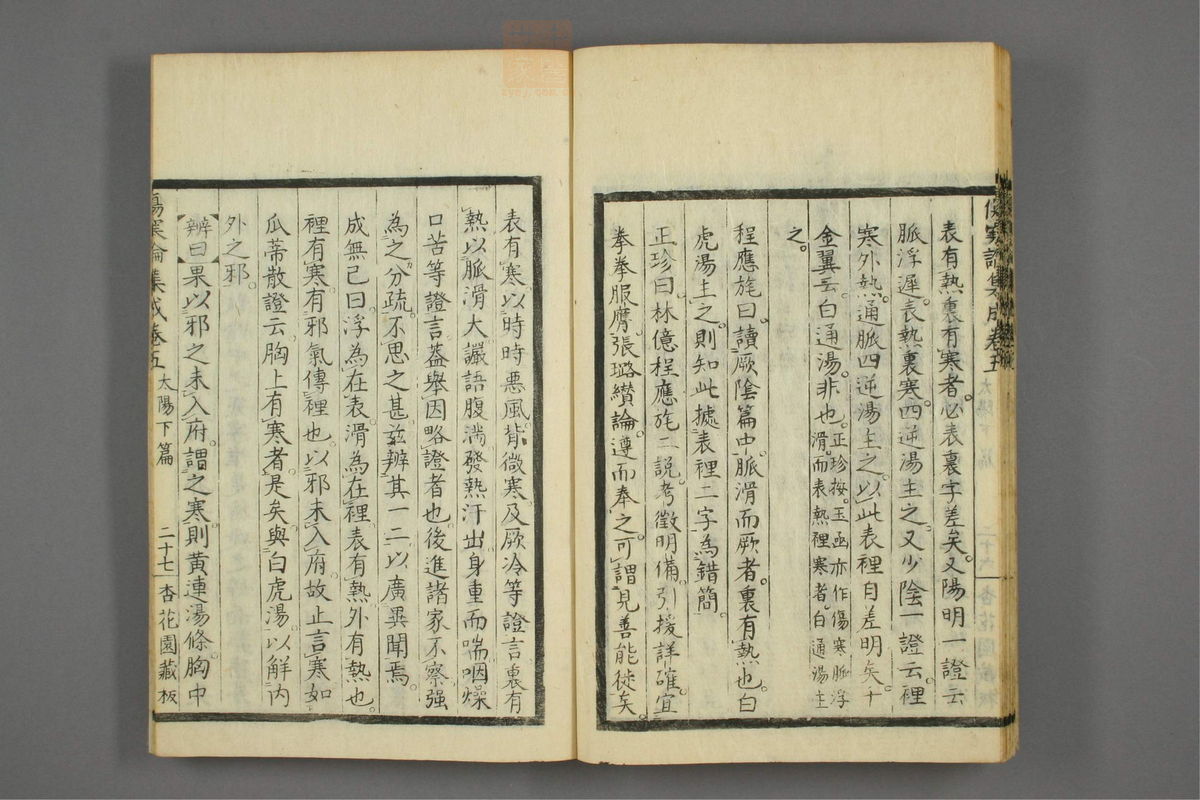 傷寒論集成卷五
表有熱裏有寒者必表裏字差矣又陽明一證云
脈浮遲表熱裏寒四逆湯主之又少陰一證云裡
寒外熱通脈四逆湯主之以此表裡自差明矣十
金翼云白通湯非也正珍按玉函亦作傷寒脈浮
滑而表熱裡寒者白通湯主
之
程應旄曰讀厥陰篇中脈滑而厥者裏有熱也白
虎湯主之則知此據表裡二字為錯簡
正珍曰林億程應旄二說考徵明備引援詳確宜
拳拳服膺張璐纉論遵而奉之可謂見善能徙矣
表有寒以時時惡風背微寒及厥冷等證言裏有
熱以脈滑大讝語腹滿發熱汗出身重而喘咽燥
口苦等證言蓋舉因略證者也後進諸家不察強
為之分疏不思之甚茲辨其一二以廣異聞焉
成無己曰浮為在表滑為在裡表有熱外有熱也
裡有寒有邪氣傳裡也以邪未入府故止言寒如
瓜蒂散證云胸上有寒者是矣與白虎湯以解內
外之邪
辨曰果以邪之未入府謂之寒則黃連湯條胸中
傷寒論集成卷五 太陽下篇 二十七 杏花園藏板